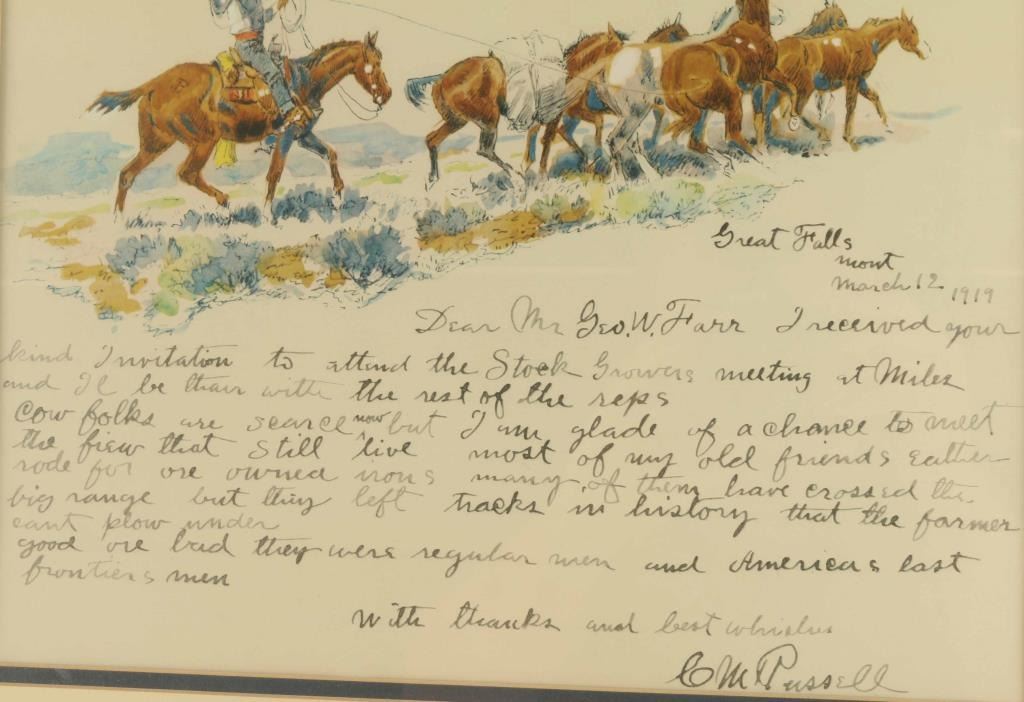 Great Falls
Mont
March 12 1919
Dear Mr Geo. W. Farr I received your
kind Invitation to attend the Stock Growers meeting at Miles
and I'l be thair with the rest of the reps
cow folks are scarce now but I am glade of a chance to meet
the fiew that still live most of my old friends eather
rode for ore owned irons many of them have crossed the
big range but they left tracks in history that the farmer
cant plow under
good ore bad they were regular men and Americas last
frontiers men
With thanks and best whishes
CM Russell